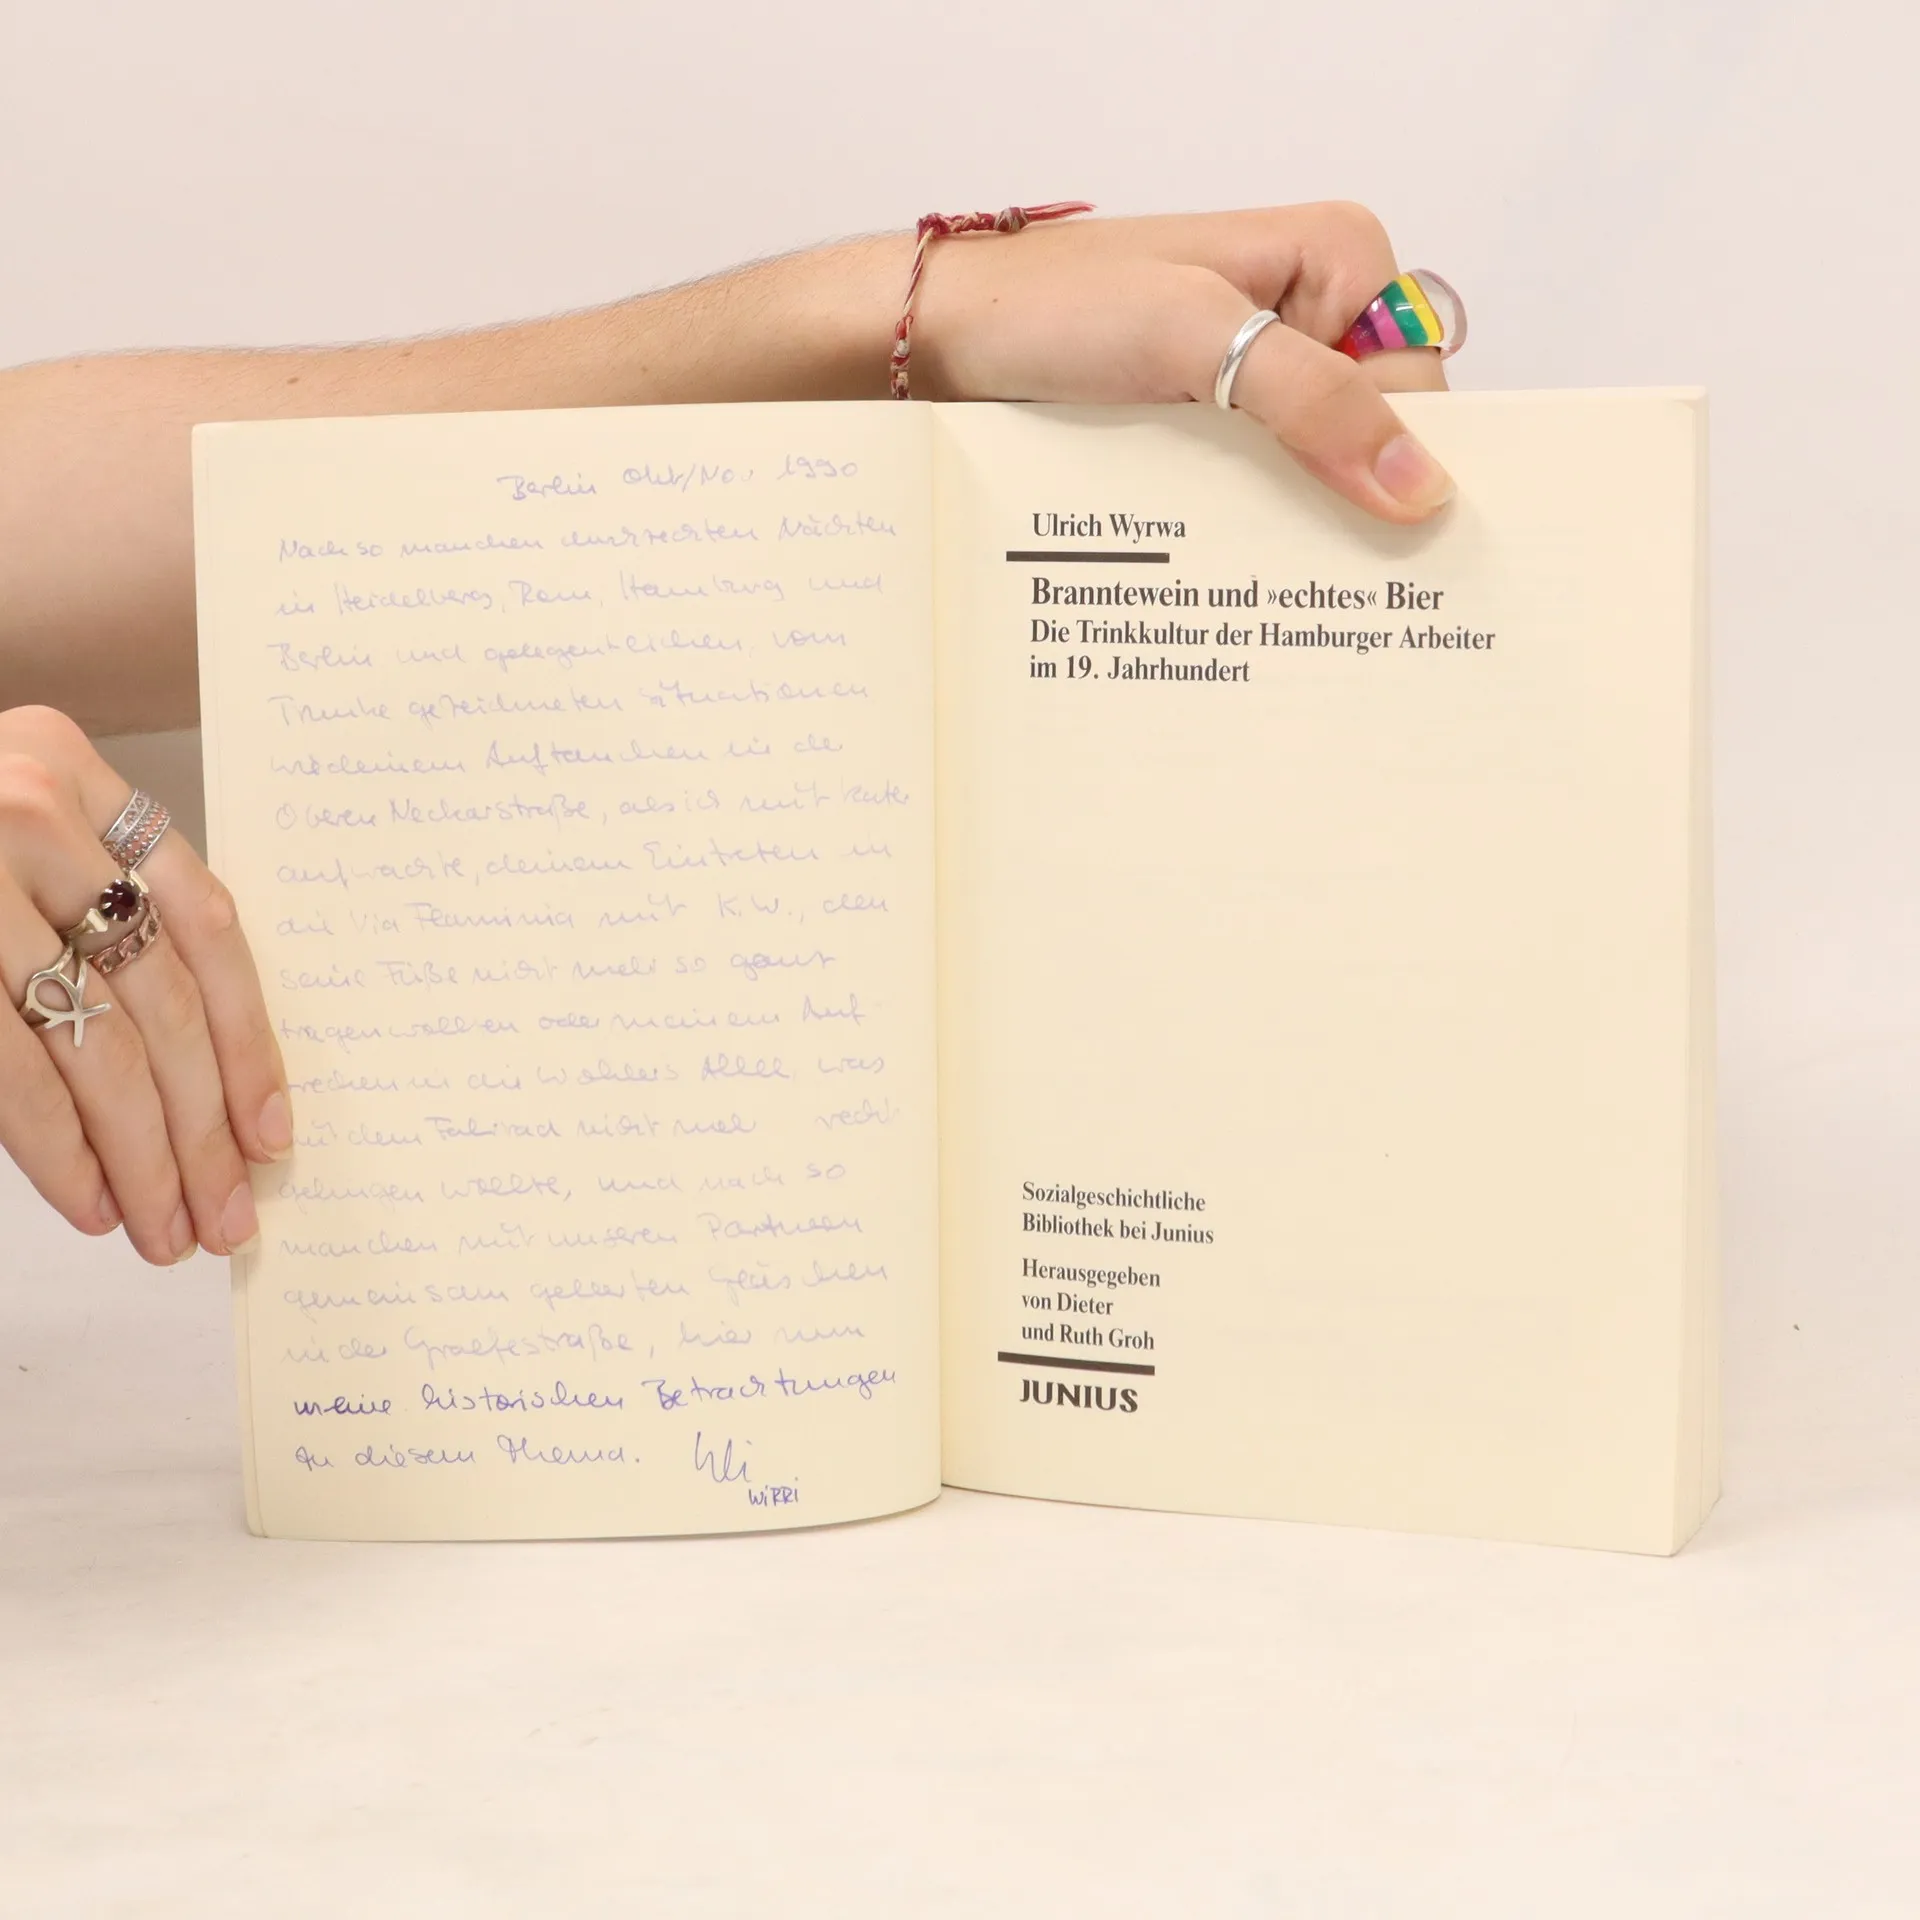 Berlin Okt/Nov 1990
Nach so manchen durchzechten Nächten
in Heidelberg, Rom, Hamburg und
Berlin und gelegentlichen, vom
Trunke gezeichneten Situationen
wie deinem Auftauchen in der
Oberen Neckarstraße, als ich mit Kater
aufwachte, deinem Eintreten in
die Via Flaminia mit K.W., den
seine Füße nicht mehr so ganz
tragen wollten oder meinem Auf
brechen in die Wohlers Allee, was
mit dem Fahrrad nicht mehr recht
gelingen wollte, und nach so
manchen mit unseren Partnern
gemeinsam geleerten Gläschen
in der Graefestraße, hier nun
meine historischen Betrachtungen
zu diesem Thema. Uli
WiRRi
Ulrich Wyrwa
Branntewein und »echtes« Bier
Die Trinkkultur der Hamburger Arbeiter
im 19. Jahrhundert
Sozialgeschichtliche
Bibliothek bei Junius
Herausgegeben
von Dieter
und Ruth Groh
JUNIUS